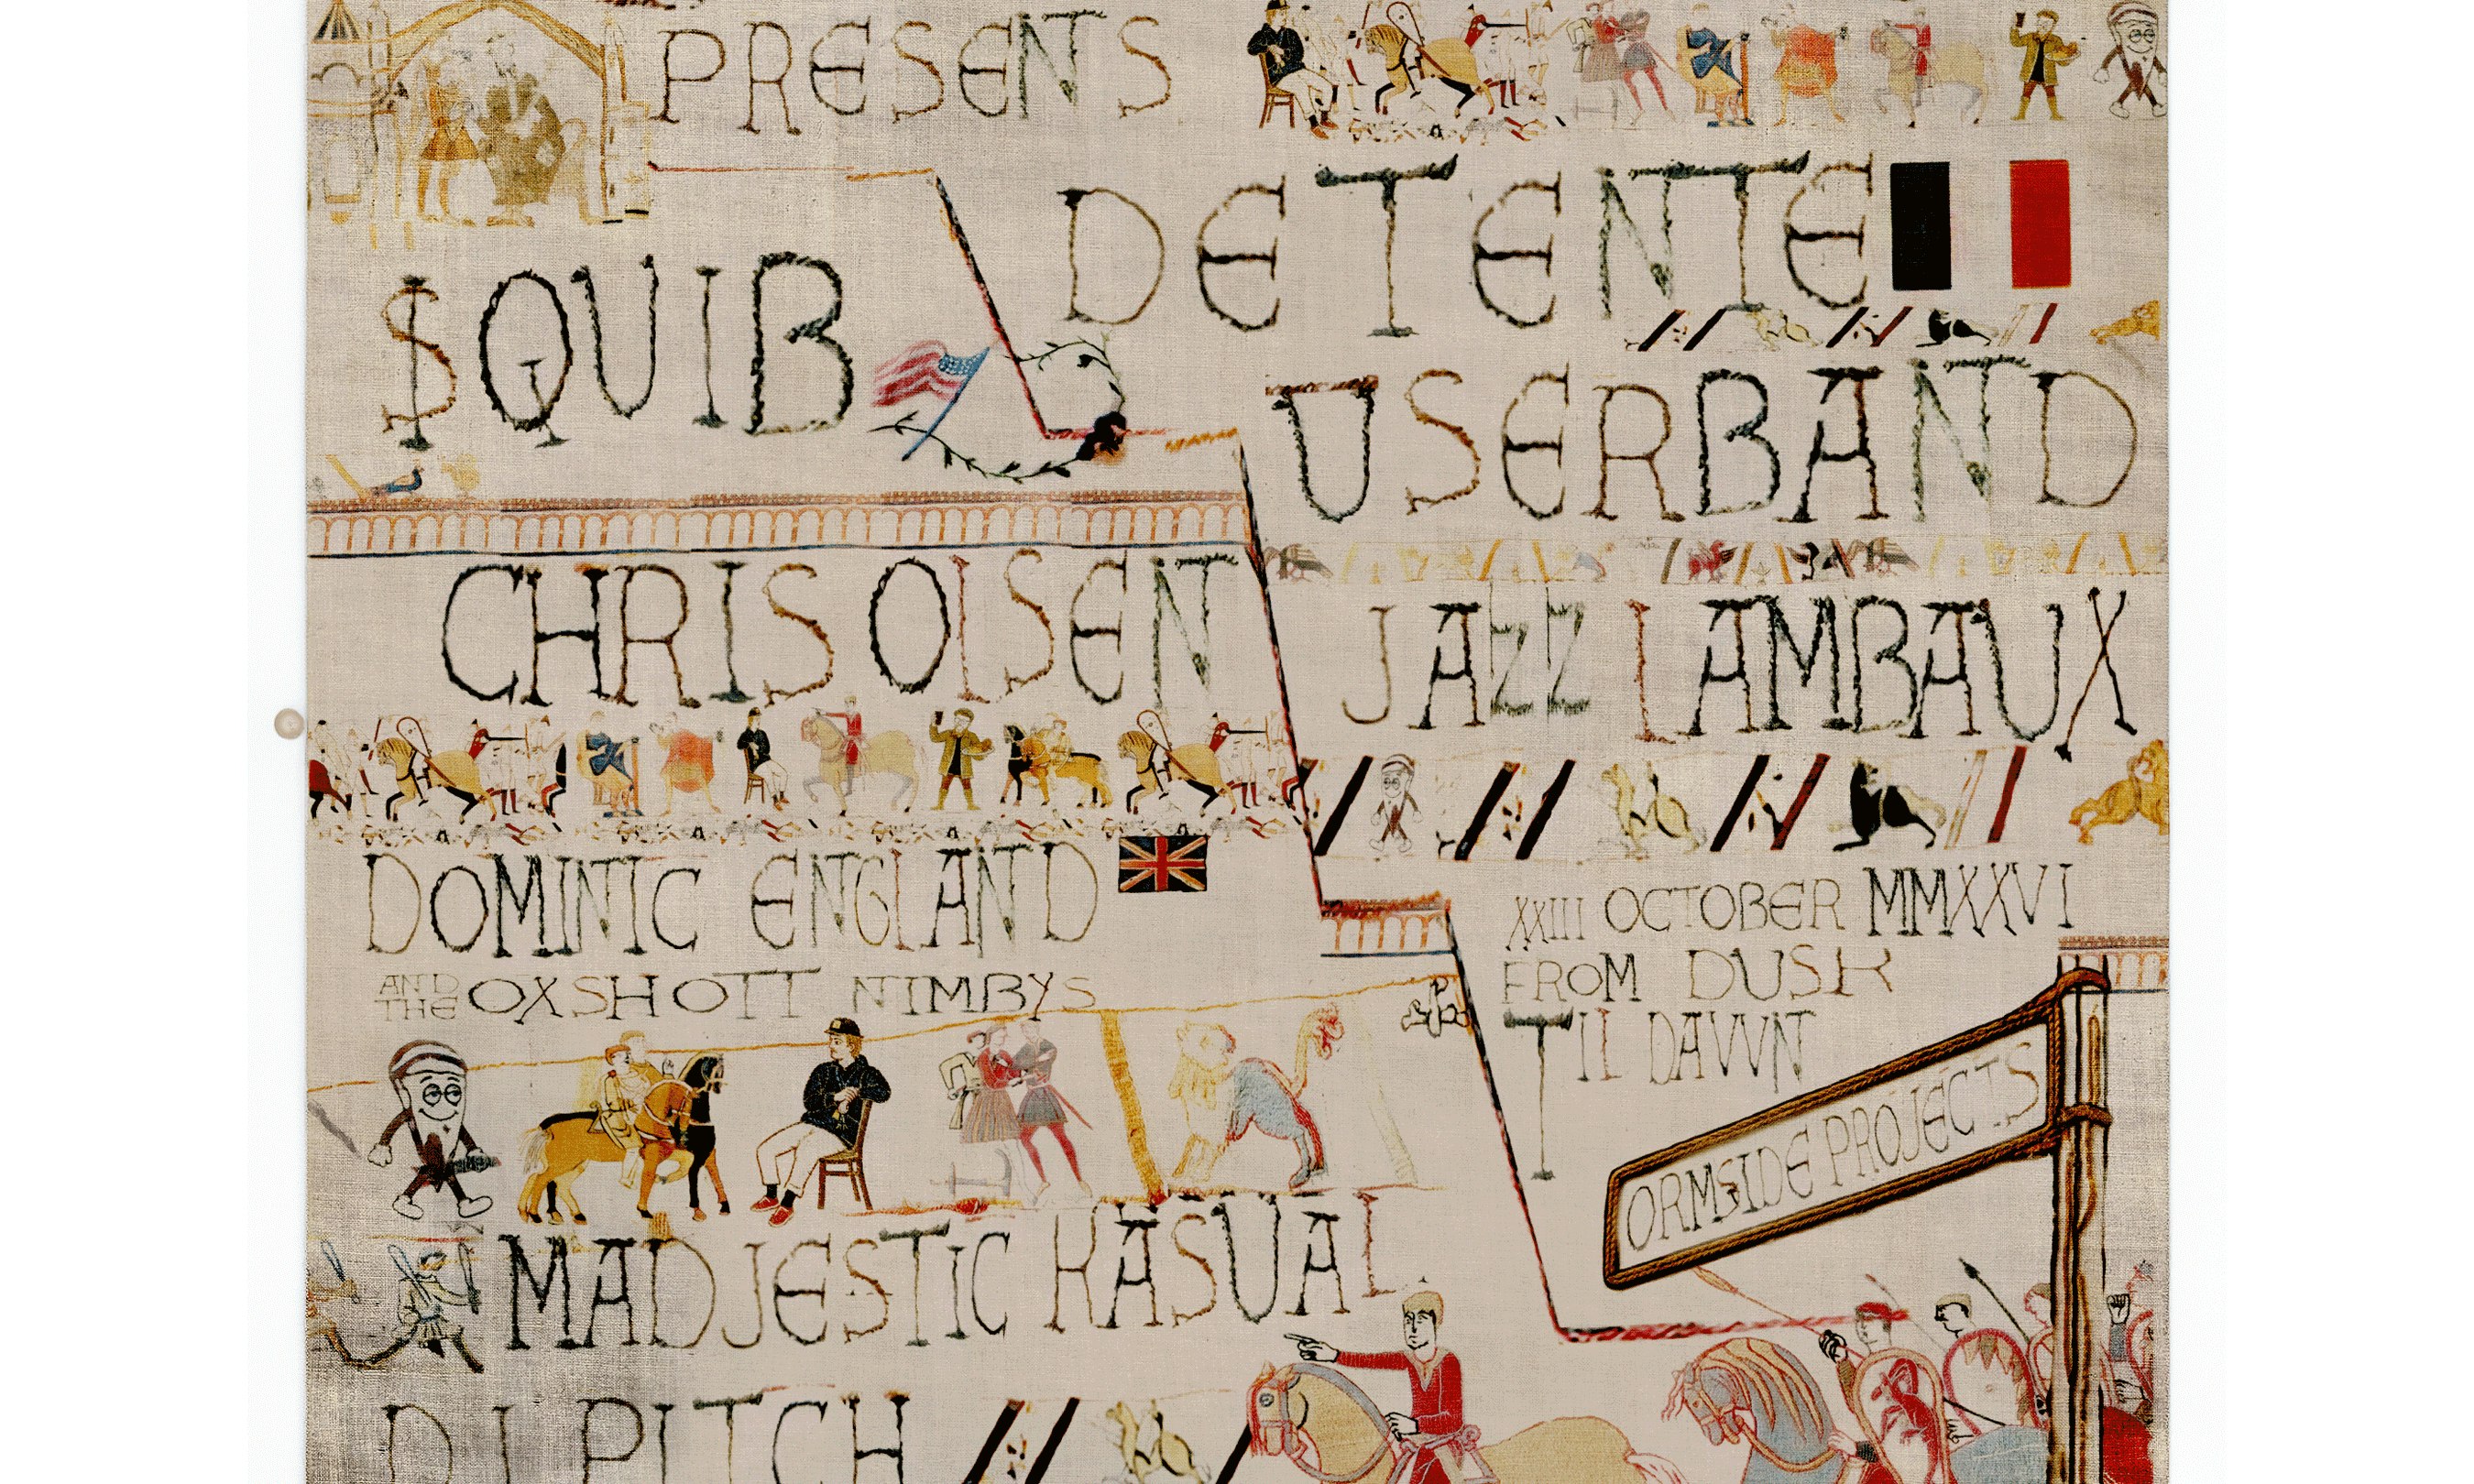 PRESENTS
DETENTE
$QUIB
USERBAND
CHRIS OLSEN
JAZZ LAMBAUX
DOMINIC ENGLAND
AND THE OXSHOTT NIMBYS
XXIII OCTOBER MMXXVI
FROM DUSK
TIL DAWN
ORMSIDE PROJECTS
MADJESTIC KASUAL
DJ PITCH